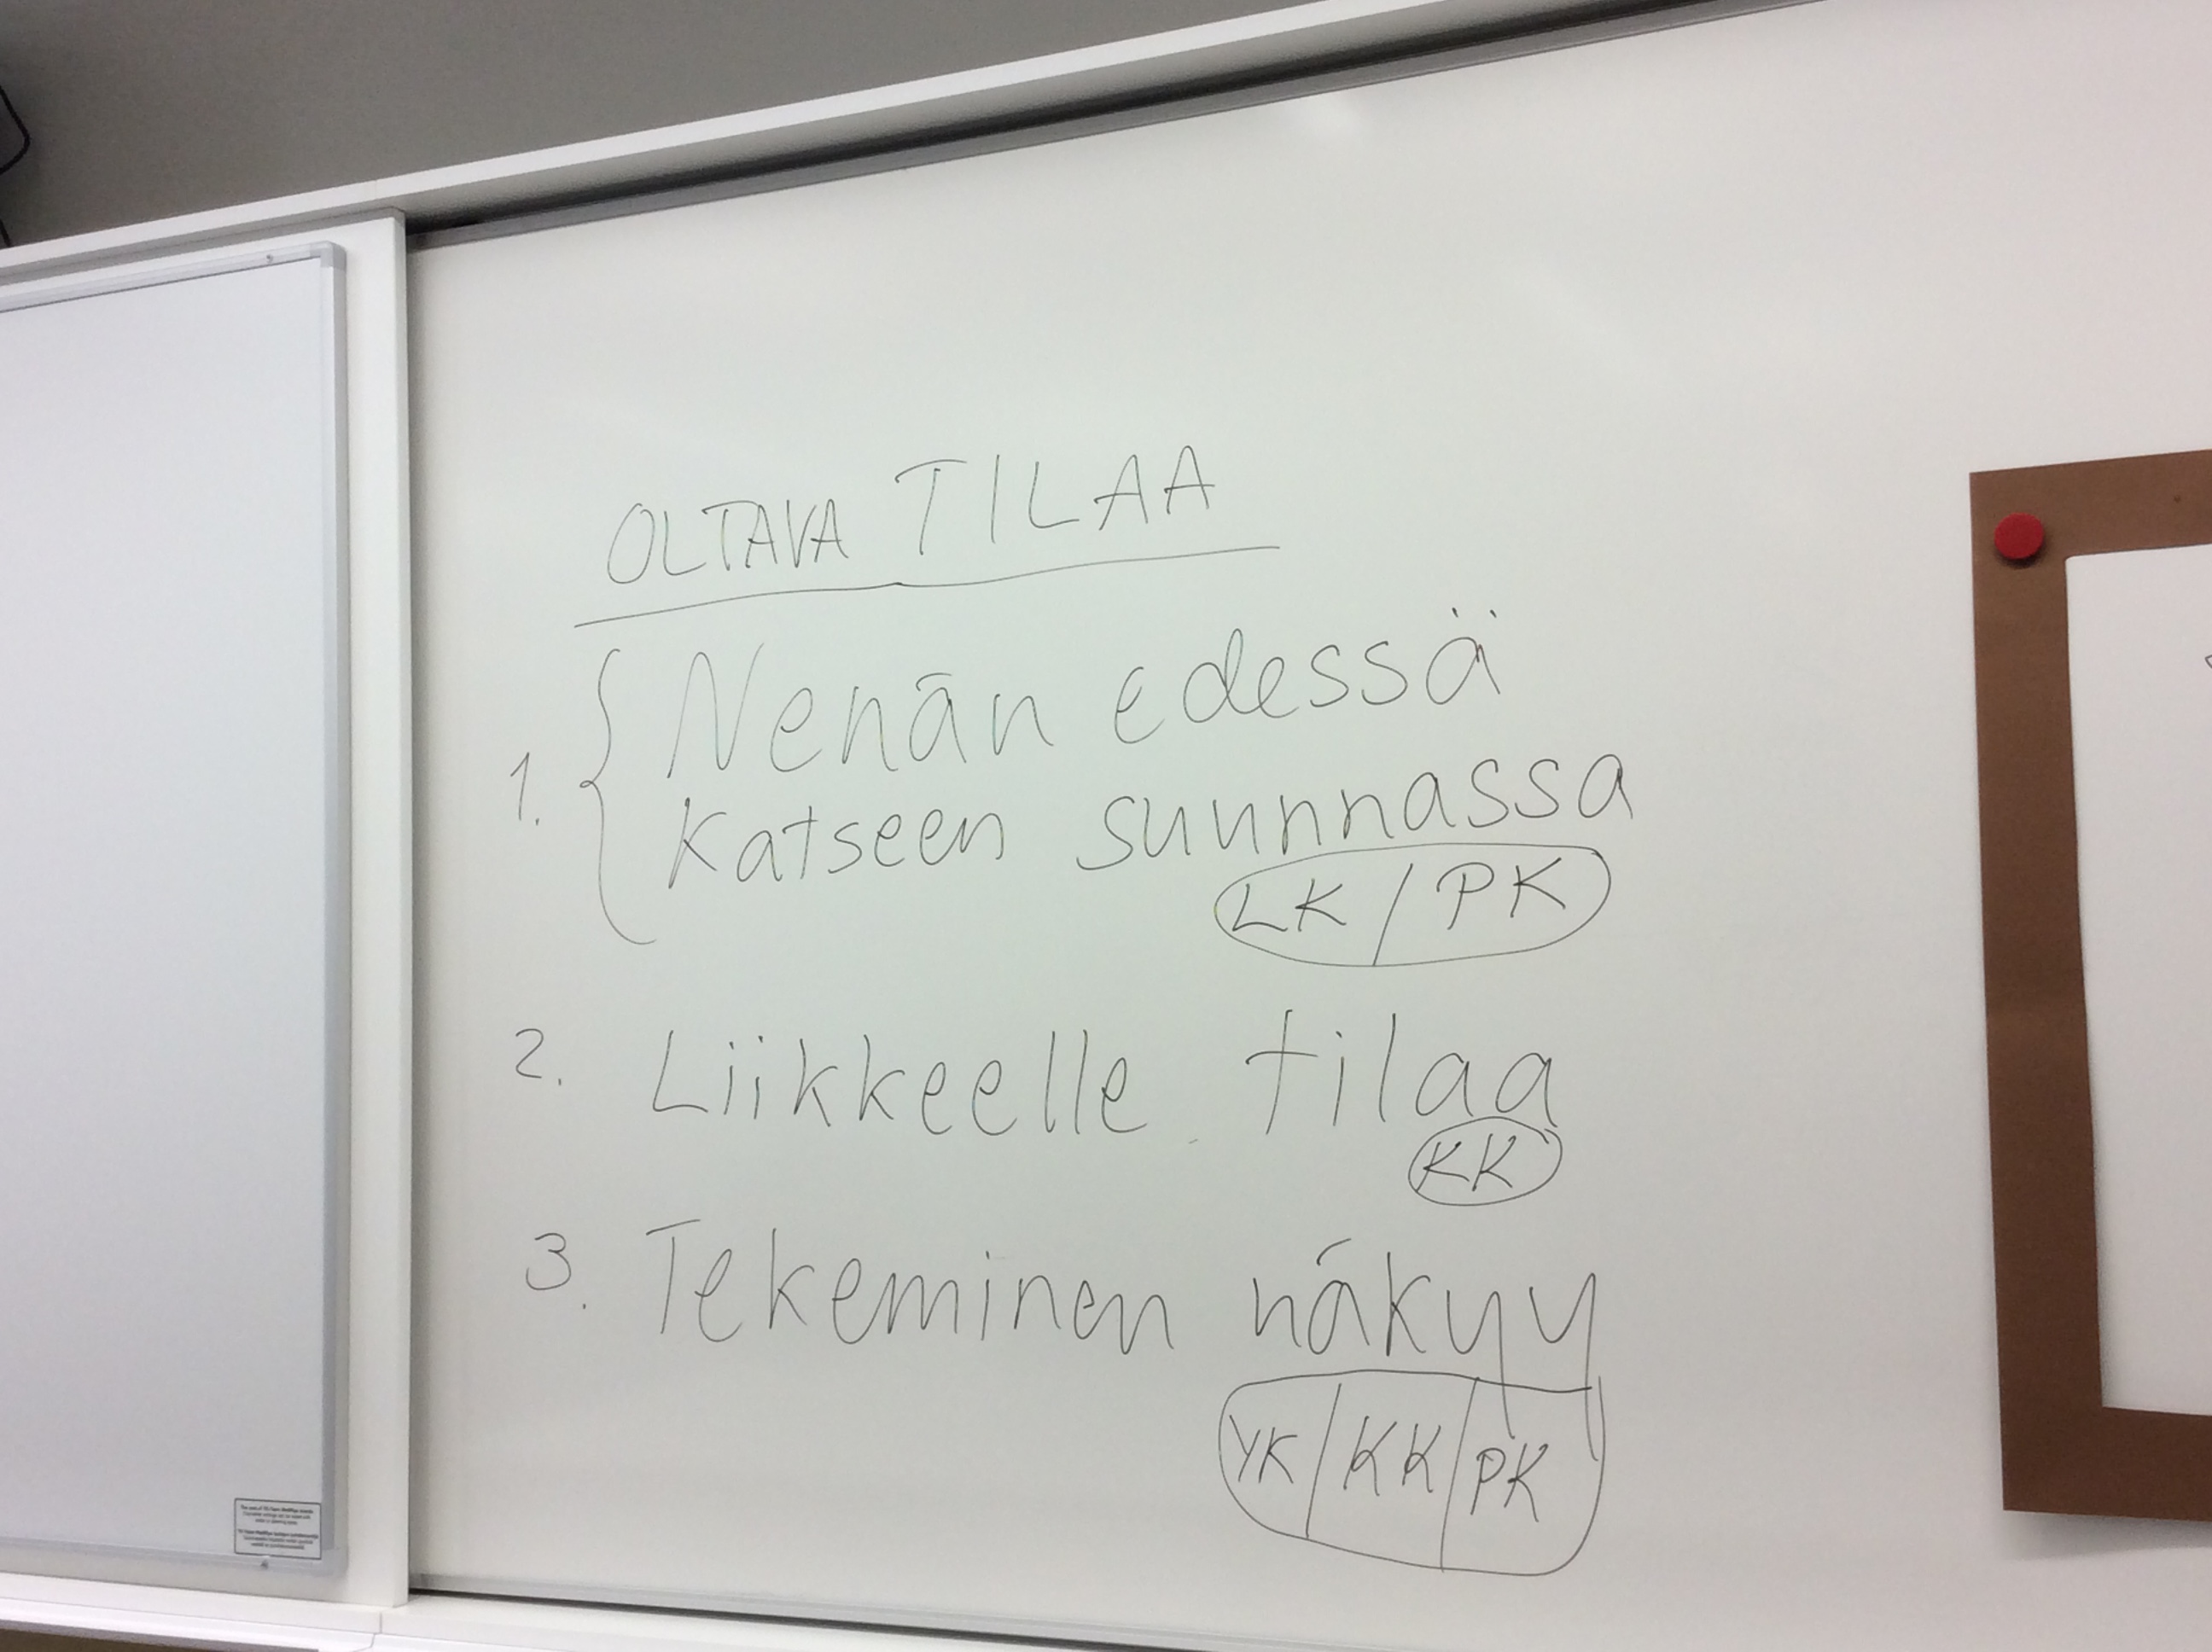 OLTAVA TILAA
1. { Nenän edessä
Katseen suunnassa
LK / PK
2. Liikkeelle tilaa
KK
3. Tekeminen näkyy
YK / KK / PK